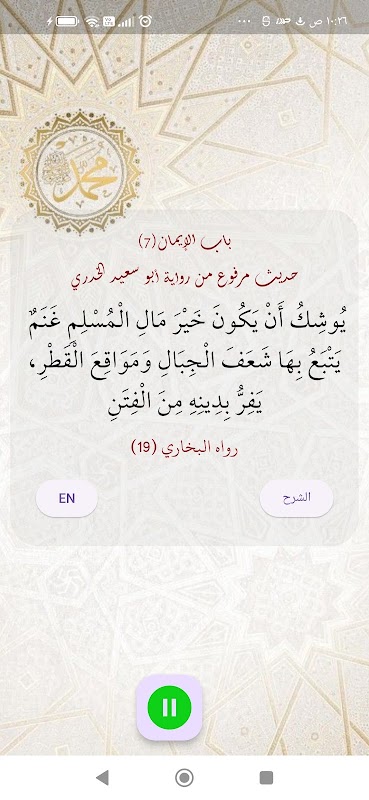 ١٠:٢٦ ص
محمد
باب الإيمان(7)
حديث مرفوع من رواية أبو سعيد الخدري
يُوشِكُ أَنْ يَكُونَ خَيْرَ مَالِ الْمُسْلِمِ غَنَمٌ
يَتْبَعُ بِهَا شَعَفَ الْجِبَالِ وَمَوَاقِعَ الْقَطْرِ،
يَفِرُّ بِدِينِهِ مِنَ الْفِتَنِ
رواه البخاري (19)
الشرح
EN